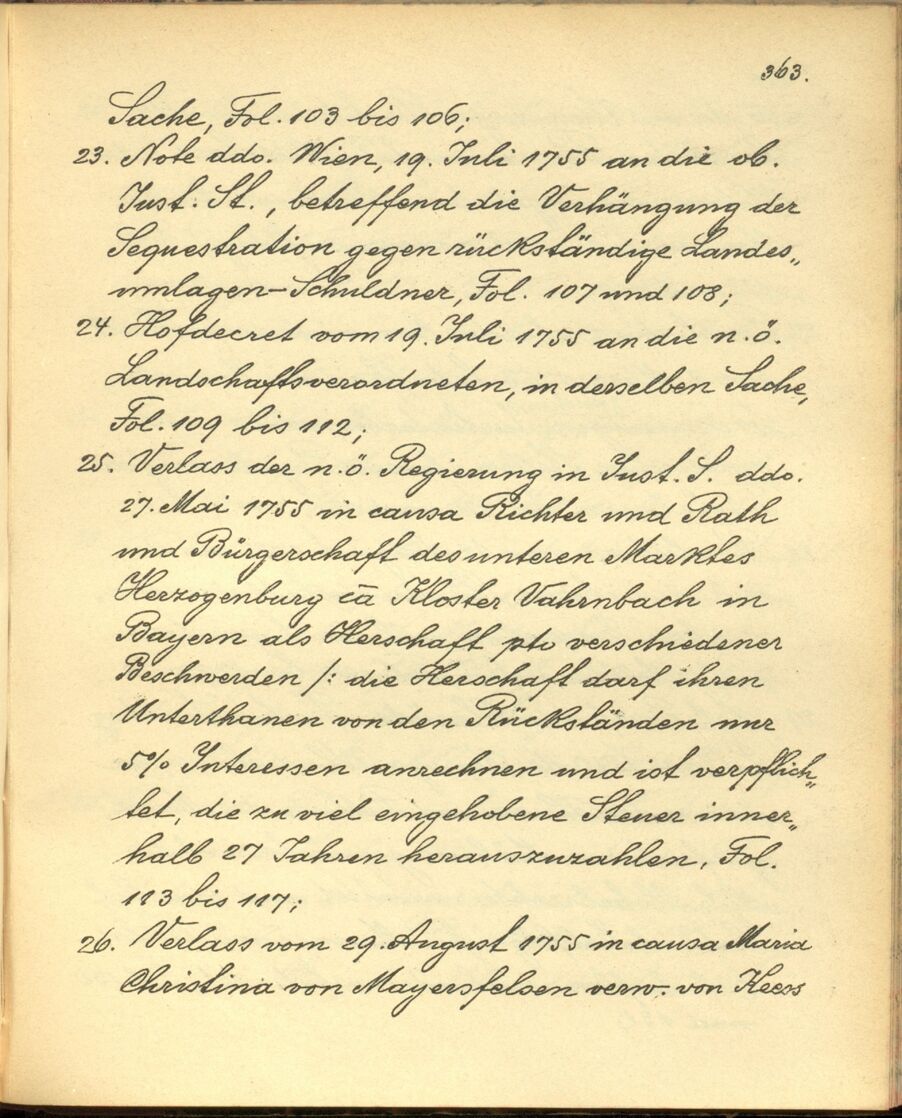 363.
Sache, Fol. 103 bis 106;
23. Note ddo. Wien, 19. Juli 1755 an die ob.
Just. St., betreffend die Verhängung der
Sequestration gegen rückständige Landes„
umlagen-Schuldner, Fol. 107 und 108;
24. Hofdecret vom 19. Juli 1755 an die n.ö.
Landschaftsverordneten, in derselben Sache,
Fol. 109 bis 112;
25. Verlass der n.ö. Regierung in Just. S. ddo.
27. Mai 1755 in causa Richter und Rath
und Bürgerschaft des unteren Marktes
Herzogenburg cā Kloster Vahrnbach in
Bayern als Herschaft pto verschiedener
Beschwerden /: die Herschaft darf ihren
Unterthanen von den Rückständen nur
5% Interessen anrechnen und ist verpflich„
tet, die zu viel eingehobene Steuer inner„
halb 27 Jahren herauszuzahlen, Fol.
113 bis 117;
26. Verlass vom 29. August 1755 in causa Maria
Christina von Mayersfelsen verw. von Keess